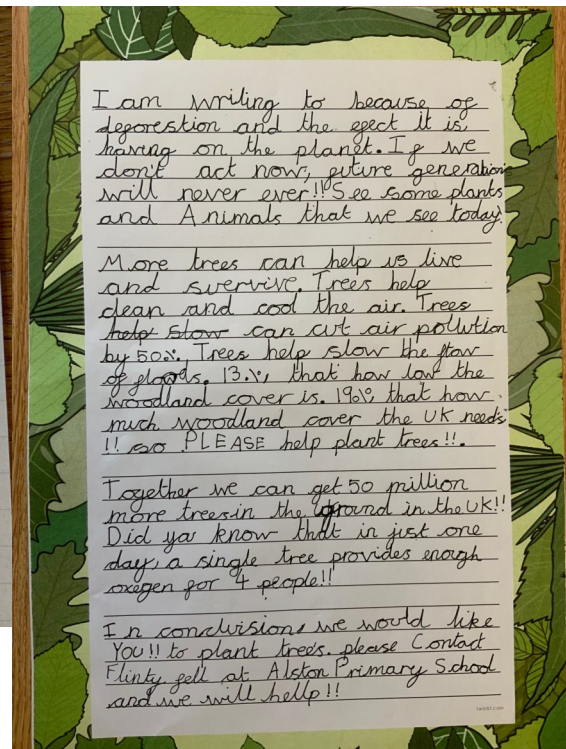 I am writing to because of
deforestion and the efect it is
having on the planet. If we
don't act now, future generations
will never ever!! See some plants
and Animals that we see today.
More trees can help us live
and survive. Trees help
clean and cool the air. Trees
help slow can cut air pollution
by 50%. Trees help slow the flow
of floods. 13%, that how low the
woodland cover is. 19% that how
much woodland cover the UK needs
!! so PLEASE help plant trees!!.
Together we can get 50 million
more trees in the ground in the UK!!
Did you know that in jist one
day, a single tree provides enogh
oxegen for 4 people!!
In conclusion, we would like
YOU!! to plant trees. please Contact
Flinty fell at Alston Primary School
and we will hellp!!
twinkl.com